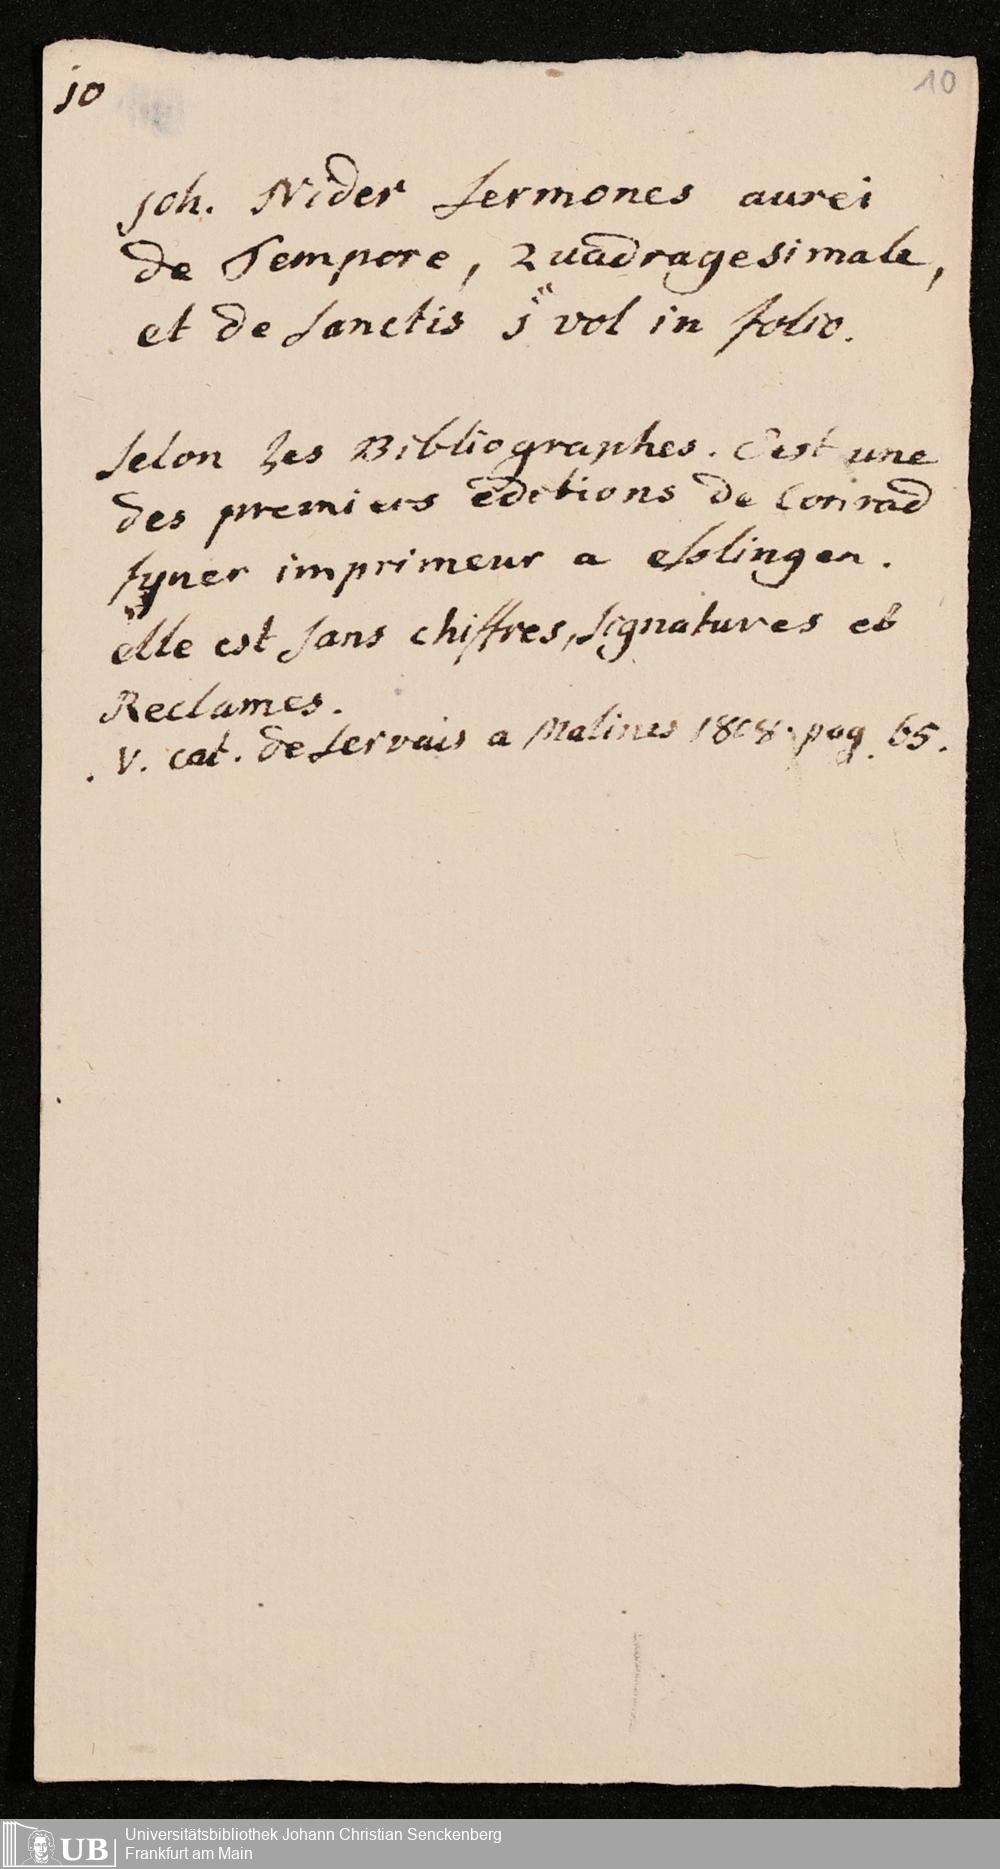 10
10
Joh. Nider Sermones aurei
de Tempore, Quadragesimale,
et de Sanctis j vol in folio.
Selon Les Bibliographes. C'est une
des premiers editions de Conrad
fyner imprimeur a esslingen.
elle est sans chiffres, signatures et
Reclames.
. V. cat. de Servais a Malines 1808. pag. 65.
Universitätsbibliothek Johann Christian Senckenberg
Frankfurt am Main
UB